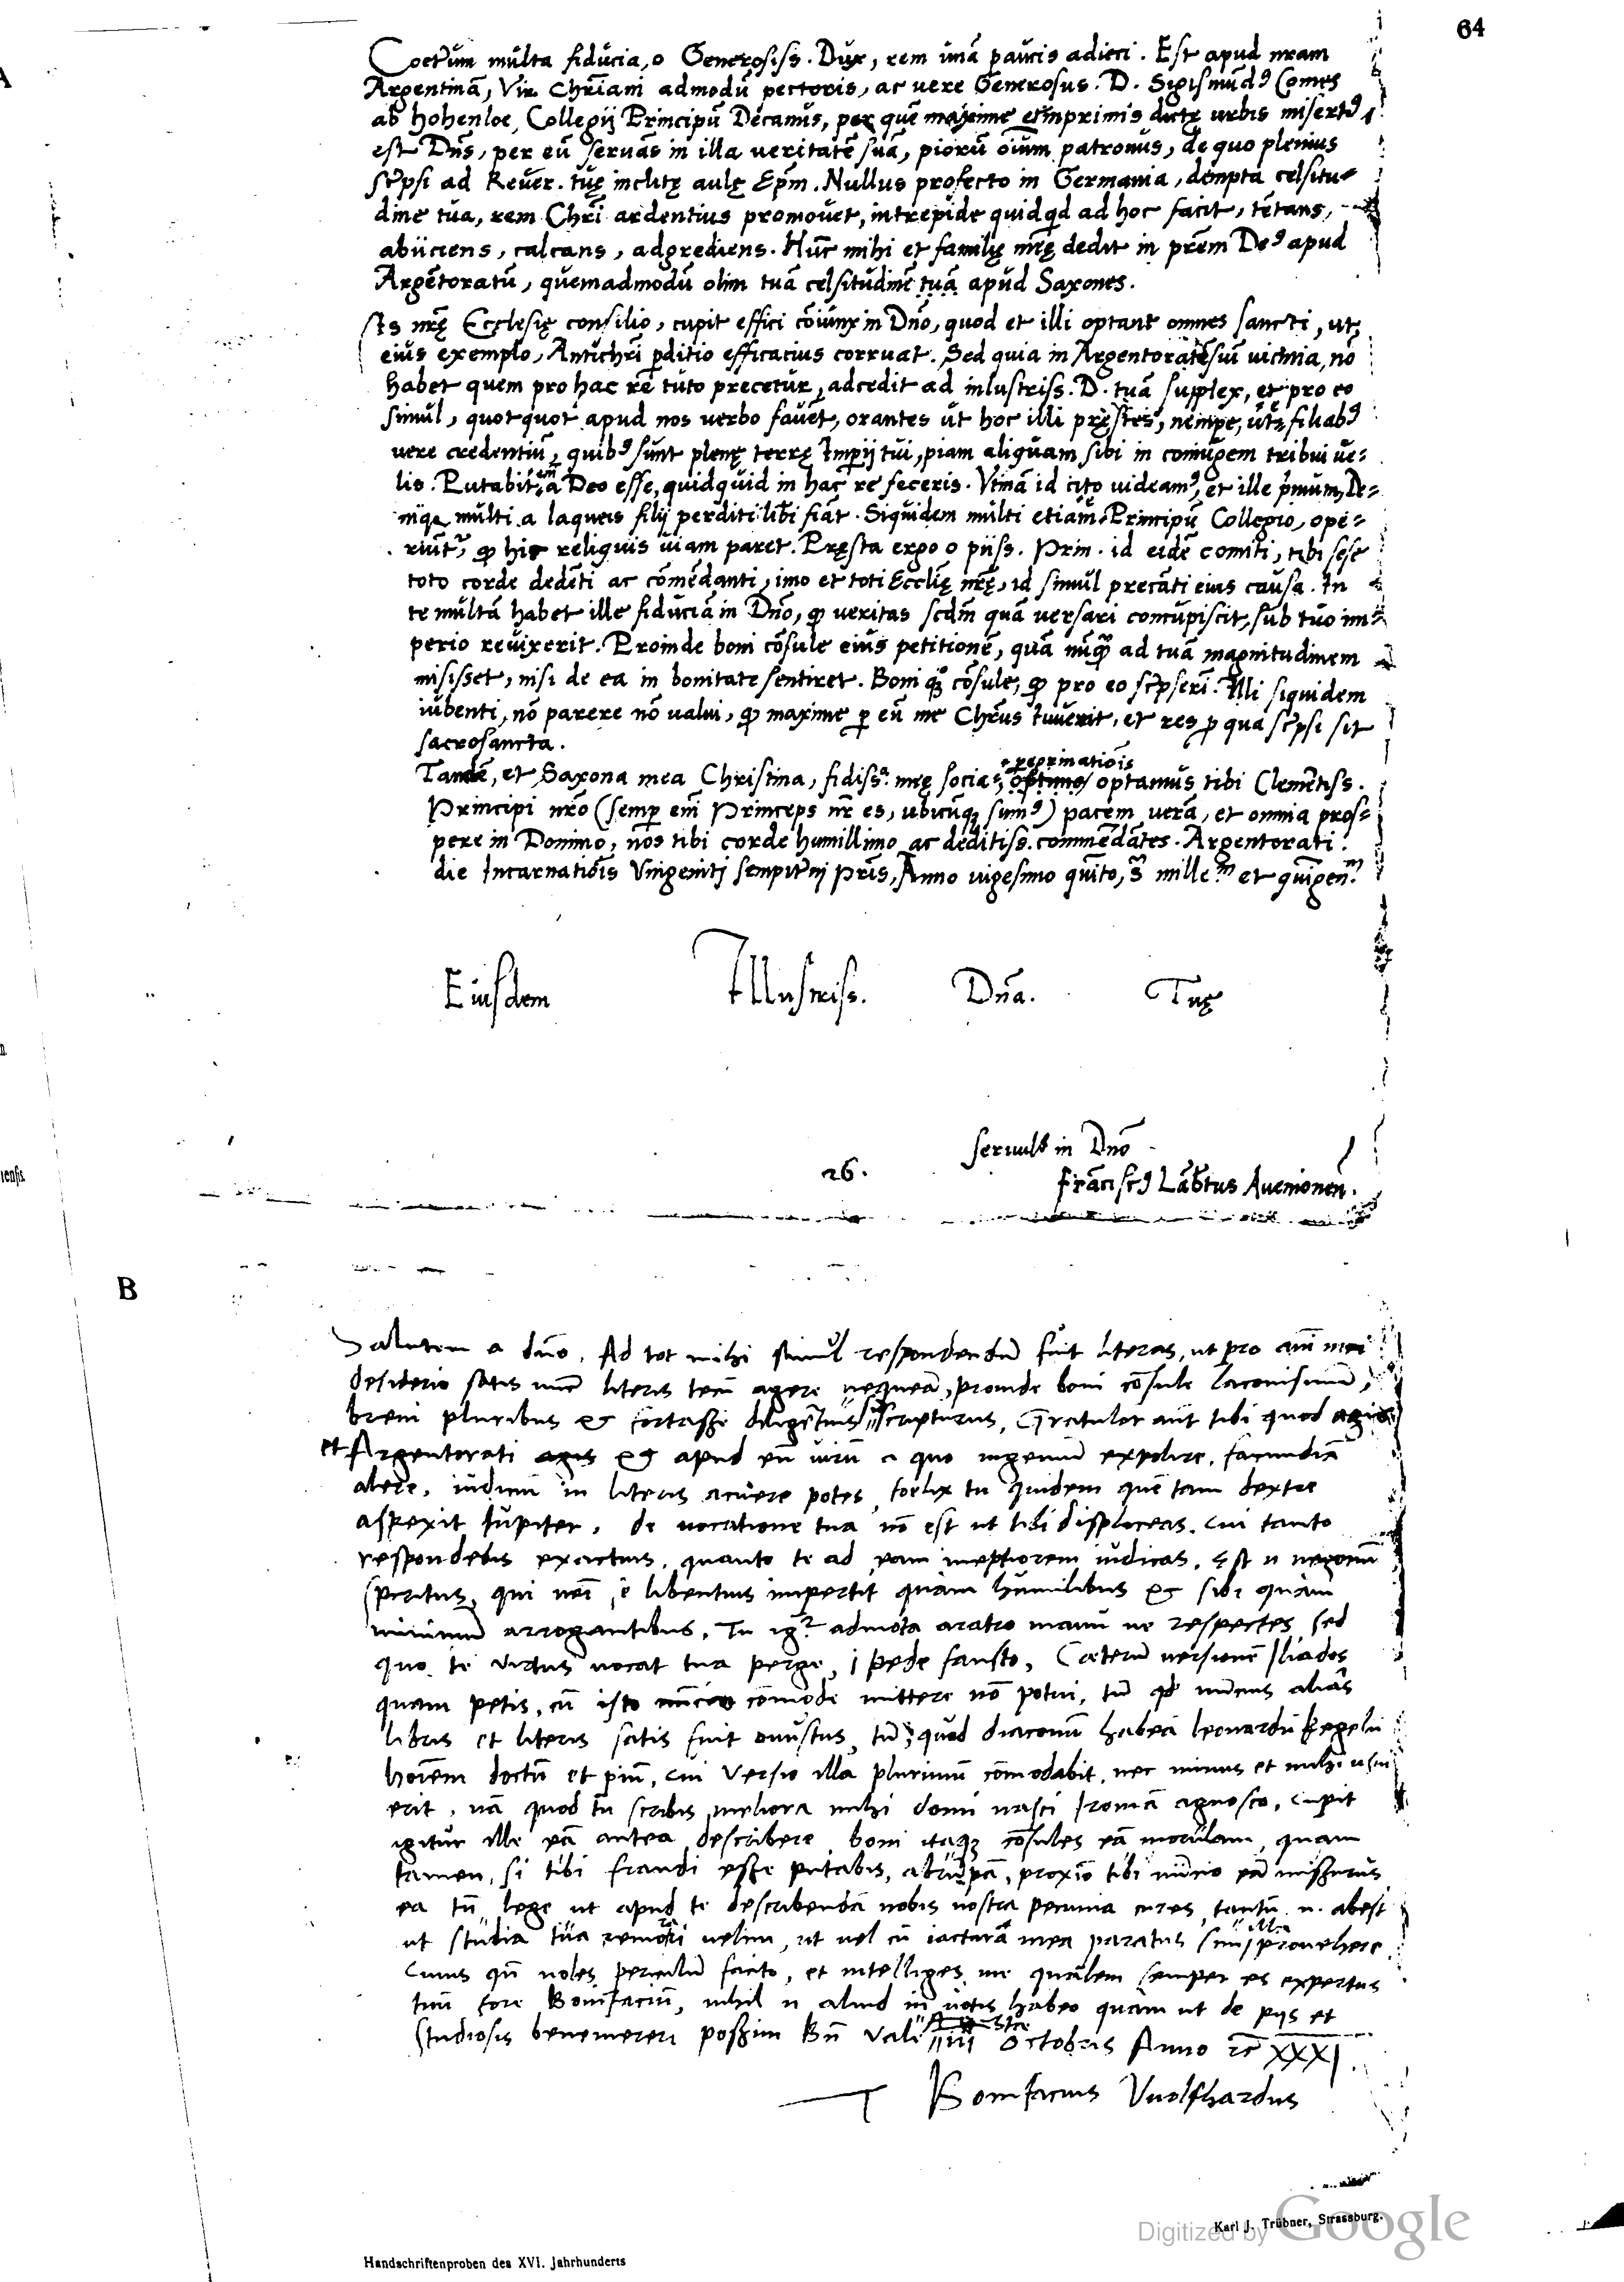 64
Coetum multa fiducia, o Generosiss. Dux, rem unā paucis adieci. Est apud nram
Argentinā, Vir Chriani admodū pectoris, ac uere Generosus. D. Sigismūdꝰ Comes
ab Hohenloe, Collegij Principū Decanus, per quē maxime et inprimis dictę urbis misertꝰ
est Dns, per eū seruās in illa ueritatē suā, piorū oium patronus, de quo plenius
scpsi ad Reuer. tuę inclitę aulę Epm. Nullus profecto in Germania, dempta celsitu=
dine tua, rem Chri ardentius promouet, intrepide quidqd ad hoc facit, tētans,
abijciens, calcans, adgrediens. Hūc mihi et familię meę dedit in prēm Deꝰ apud
Argētoratū, quemadmodū olim tuā celsitudinē tuā apud Saxones.
Is nrę Ecclesię consilio, cupit effici cōiunx in Dnō, quod et illi optant omnes sancti, ut
eius exemplo, Antichri pditio efficacius corruat. Sed quia in Argentoratēsiū uicinia, nō
habet quem pro hac rē tuto precetur, adcedit ad inlustriss. D. tuā supplex, et pro eo
simul, quotquot apud nos uerbo fauēt, orantes ut hoc illi pręstes, nempe, ut ę filiabꝰ
uere credentiū, quibꝰ sunt plenę terrę Imperij tui, piam aliquam sibi in coniugem tribui ue=
lis. Putabit em̄ a Deo esse, quidquid in hac re feceris. Vtinā id cito uideamꝰ, et ille pmum, De=
niqe multi a laqueis filij perditi libi fiāt. Siquidem multi etiam Principū Collegio, ope=
riūt, qp his reliquis uiam paret. Pręsta ergo o pijss. Prin. id eidē comiti, tibi sese
toto corde dedēti ac cōmēdanti, imo et toti Ecclię nrę, id simul precāti eius causa. In
te multā habet ille fiduciā in Dnō, qp ueritas scdm quā uersari concupiscit, sub tuo im=
perio reuixerit. Proinde boni cōsule eius petitionē, quā nūqp ad tuā magnitudinem
misisset, nisi de ea in bonitate sentiret. Boni qꝫ cōsule, qp pro eo scpserī. Illi siquidem
iubenti, nō parere nō ualui, qp maxime p eū me Chrūs iuuerit, et res p qua scpsi sit
sacrosancta.
Tandē, et Saxona mea Christina, fidissᵃ. meę socia peregrinatiōis optamus tibi Clemētiss.
Principi nrō (semp eni Princeps nr es, ubicūqꝫ sumꝰ) pacem uerā, et omnia pros=
pere in Domino, nos tibi corde humillimo ac deditiss. commēdātes. Argentorati.
die Incarnatiōis Vnigeniti sempiterni Pris, Anno uigesimo quīto, s mille.ᵐ et quīgen.ᵐ
Eiusdem Illustriss. Dna. Tuę
seruulꝰ in Dnō
26.
Frāciscꝰ Lābtus Auenionen.
B
Salutem a dno. Ad tot mihi simul respondendū fuit literas, ut pro aīī mei
desiderio satis nunc literis tecū agere nequeā, proinde boni cōsule laconismū,
breui pluribus et fortasse diligētius scripturus, Gratulor aūt tibi quod
et Argentorati agis et apud eū uirū a quo ingeniū expolire, facundiā
alere, iudiciū in literis acuere potes, foelix tu quidem quē tam dextre
aspexit Iupiter. de uocatione tua nō est ut tibi displiceas. cui tanto
respondebis exactius, quanto te ad eam ineptiorem iudicas. Est n
spiritus, qui libentius impertit quam humilibus et sibi quam
minimū arrogantibus. Tu igr admota aratro manu ne respectes sed
quo te uirtus uocat tua perge, i pede fausto. Cæterū uersionē Iliados
quam petis, cū isto nūcio cōmode mittere nō potui, tū qd nūcius aliās
libris et literis satis fuit onustus, tū quod diaconū habeā leonardū Regelū
hoīem doctū et piū, cui uersio illa plurimū cōmodabit, nec minus et mihi usui
erit, nā quod tu scribis meliora mihi domi nasci Ironiā agnosco. Cupit
igitur ille eā antea describere, boni itaqꝫ cōsules eā morulam, quam
tamen, si tibi fraudi esse putabis, abrūpā, proxīo tibi nūcio eā missurus
ea tū lege ut apud te describendā nobis nostra pecunia cures, tantū n. abest
ut studia tua remorari uelim, ut uel cū iacturā mea paratus sim illa prouehere
Cuius qū uoles periculū facito, et intelliges me qualem semper es expertus
tuū fore Bonifaciū, nihil n aliud in uotis habeo quam ut de pijs et
studiosis benemereri possim Bn Vale iiij Octobris Anno rc XXXI.
Bonifacius Vuolfhardus
Karl J. Trübner, Strassburg.
Digitized by Google
Handschriftenproben des XVI. Jahrhunderts